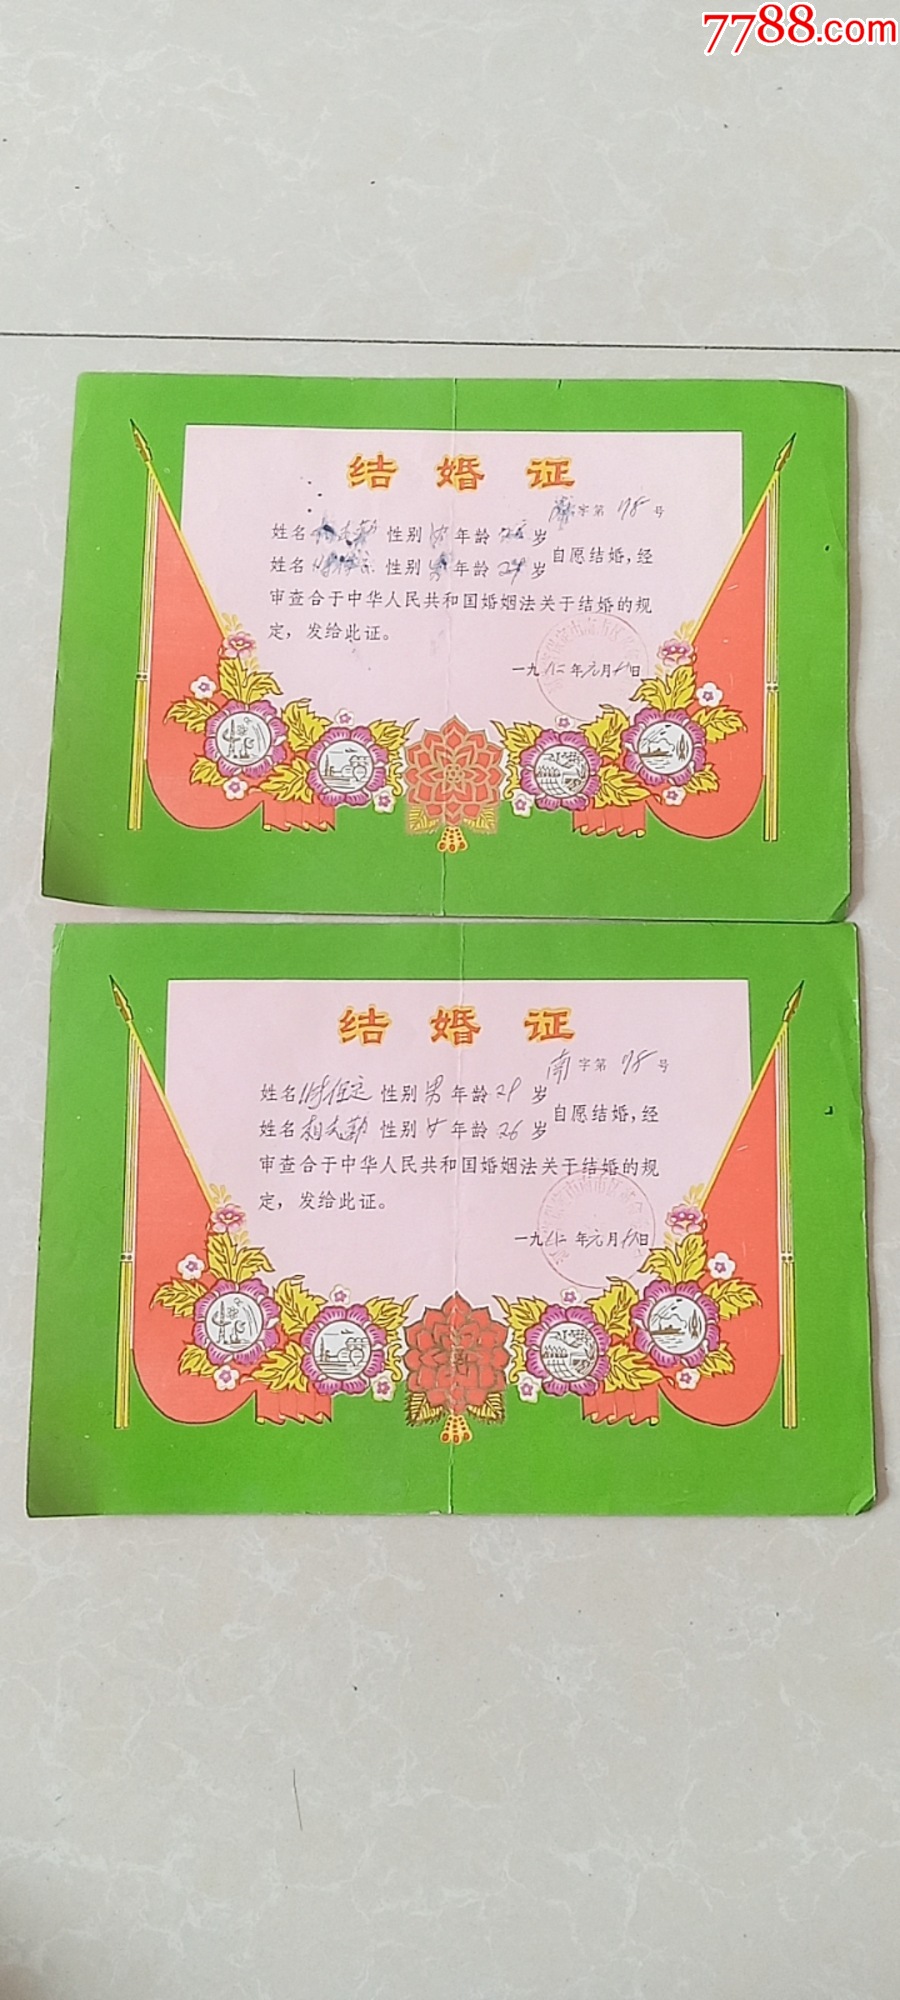 7788.com
结婚证
字第 78 号
姓名 性别 女 年龄 26 岁
姓名 性别 男 年龄 29 岁
自愿结婚，经
审查合于中华人民共和国婚姻法关于结婚的规
定，发给此证。
一九八二年元月 日
结婚证
南字第 78 号
姓名 性别 男 年龄 29 岁
姓名 性别 女 年龄 26 岁
自愿结婚，经
审查合于中华人民共和国婚姻法关于结婚的规
定，发给此证。
一九八二年元月 日